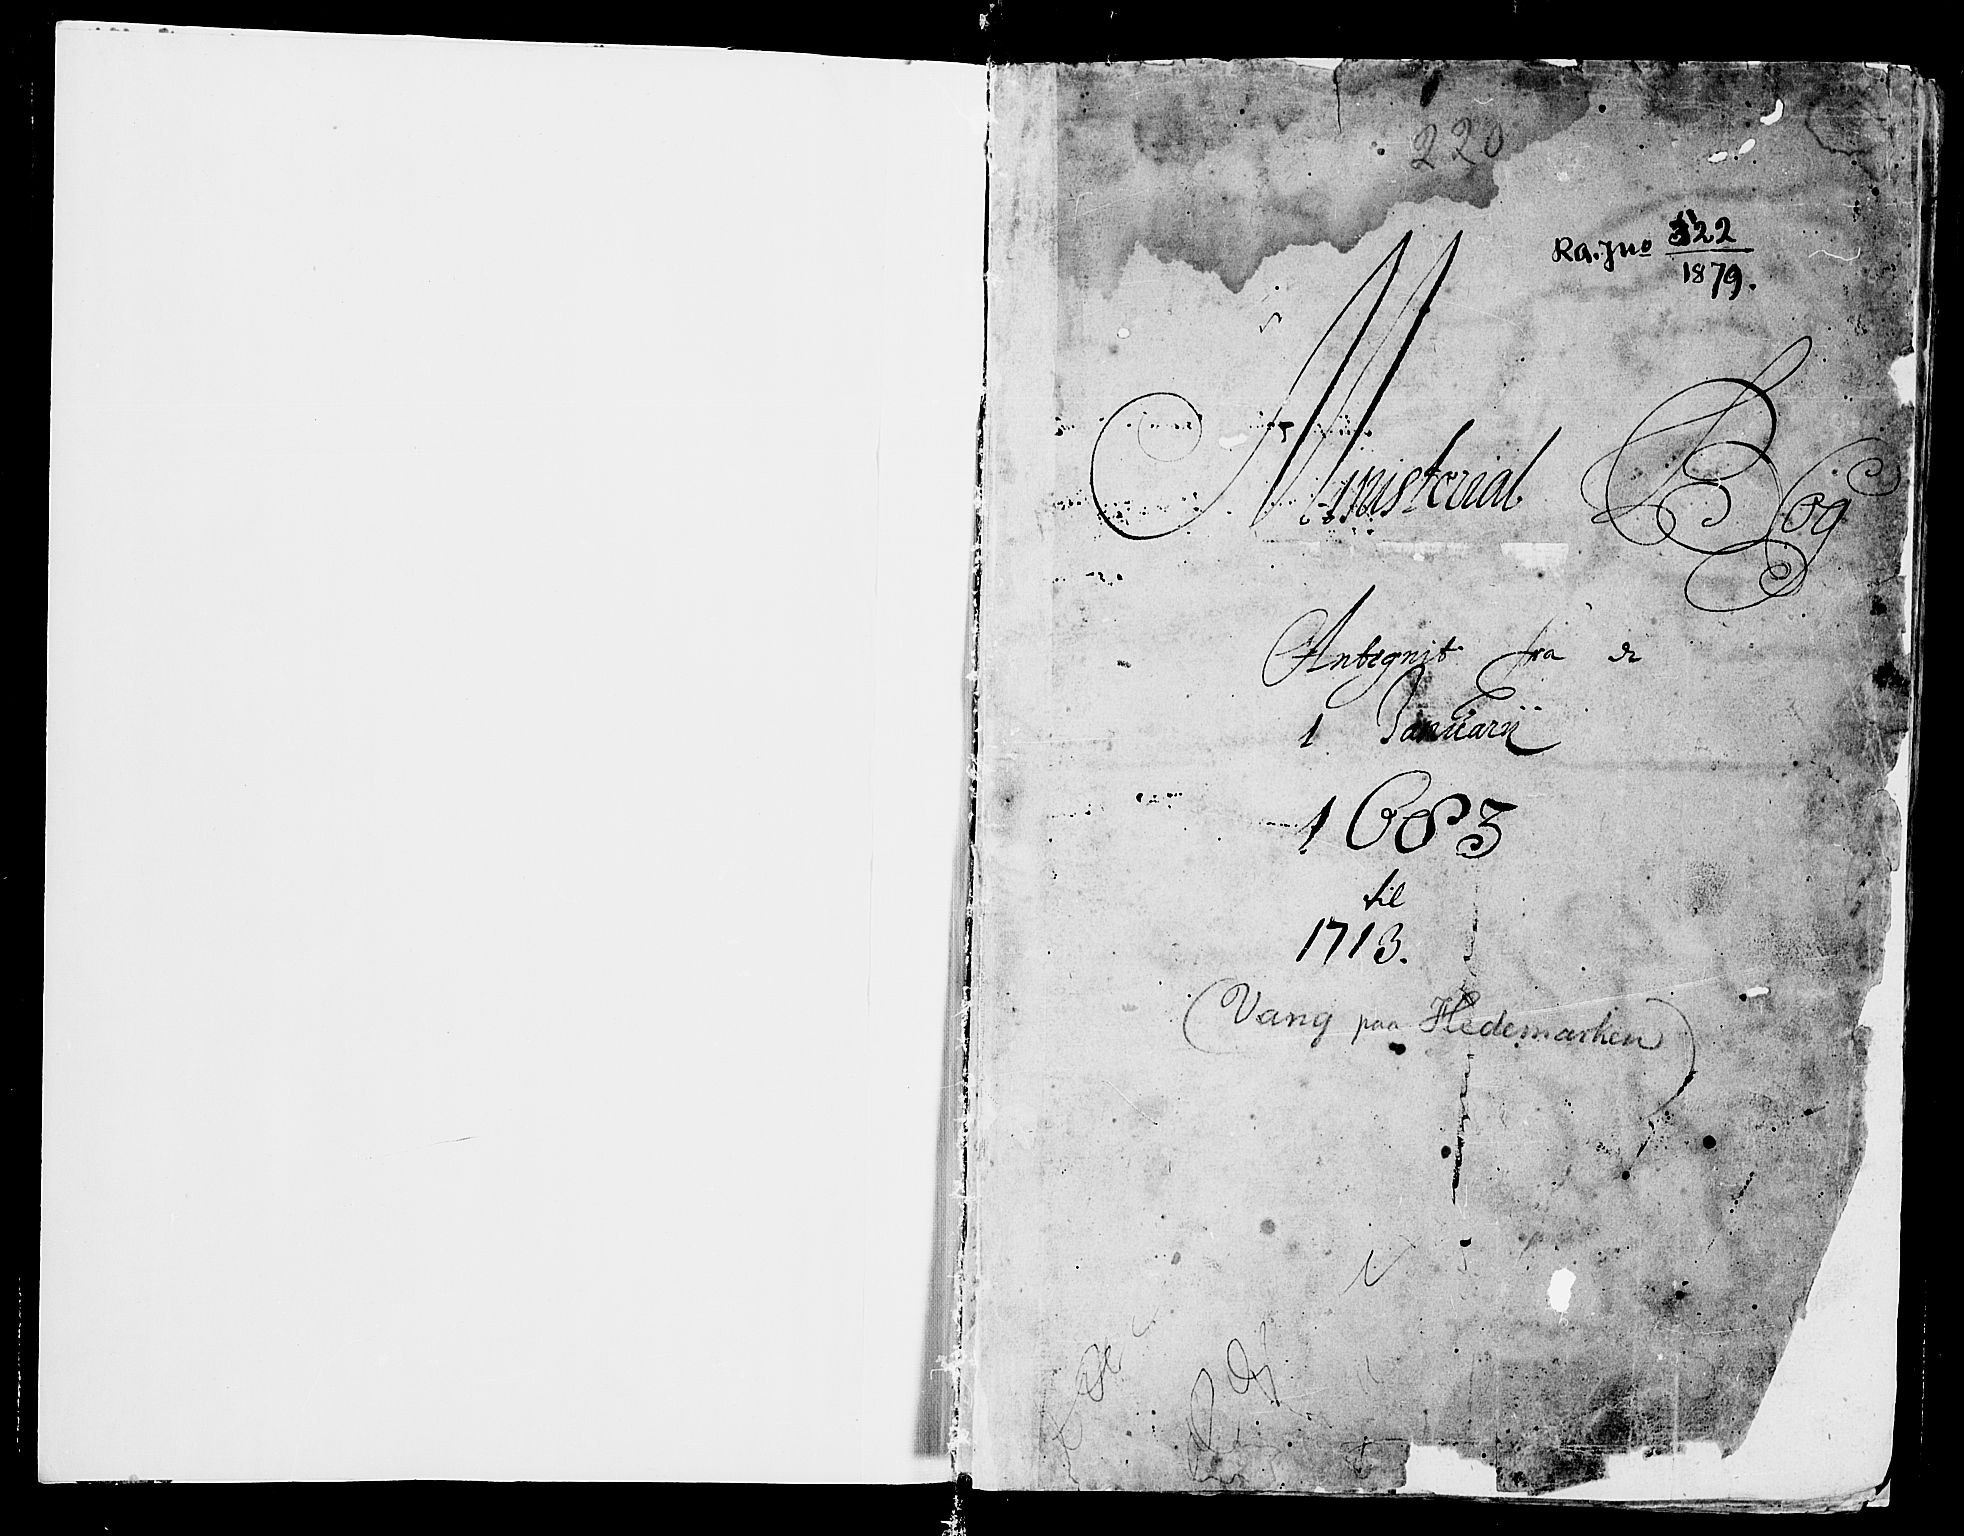 220
Ra. Jno 322
1879.
Ministerial Bog
Antegnit fra de
1 Januarij
1683
til
1713.
(Vang paa Hedemarken)